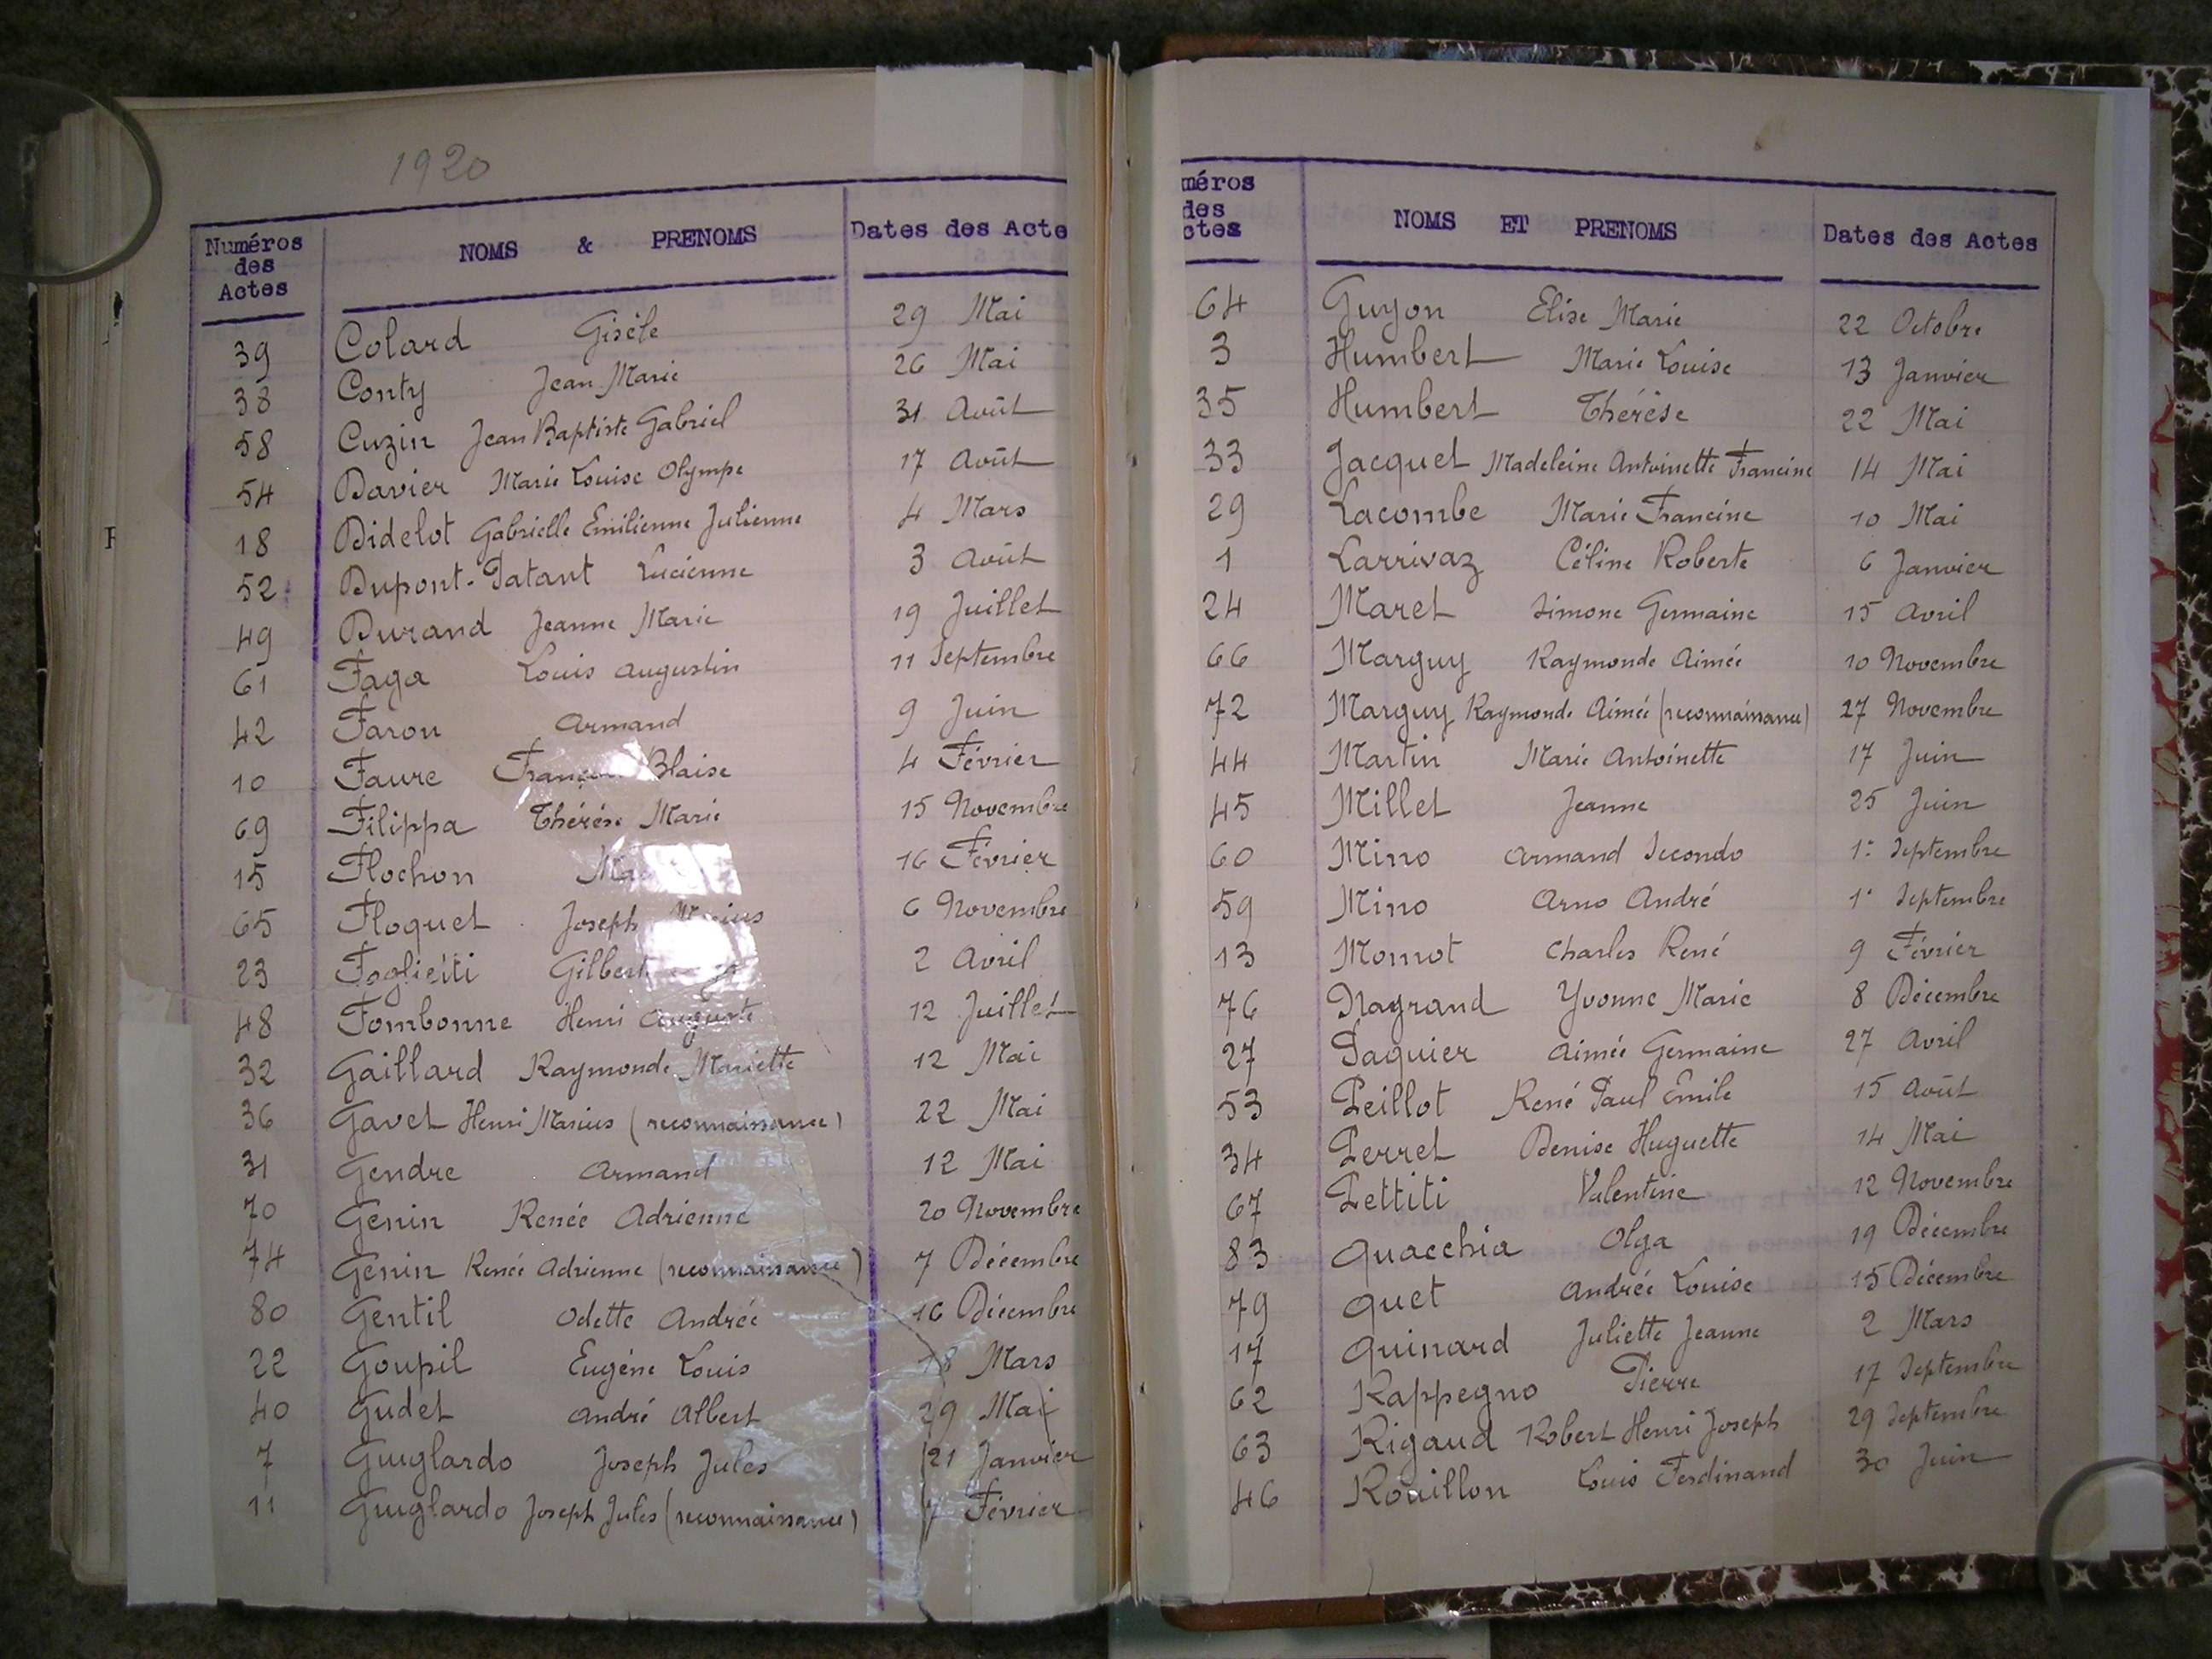 1920
Numéros des Actes NOMS & PRENOMS Dates des Acte
39 Colard Gisèle 29 Mai
38 Conty Jean Marie 26 Mai
58 Cuzin Jean Baptiste Gabriel 31 Août
54 Davier Marie Louise Olympe 17 Août
18 Didelot Gabrielle Emilienne Julienne 4 Mars
52 Dupont-Patant Lucienne 3 Août
49 Durand Jeanne Marie 19 Juillet
61 Faga Louis Augustin 11 Septembre
42 Farou Armand 9 Juin
10 Faure Blaise 4 Février
69 Filippa Thérèse Marie 15 Novembre
15 Flochon 16 Février
65 Floquet Joseph 6 Novembre
23 Foglieiti 2 Avril
48 Fombonne Henri Auguste 12 Juillet
32 Gaillard Raymonde Mariette 12 Mai
36 Gavet Henri Marius (reconnaissance) 22 Mai
31 Gendre Armand 12 Mai
70 Genin Renée Adrienne 20 Novembre
74 Genin Renée Adrienne (reconnaissance) 7 Décembre
80 Gentil Odette Andrée 16 Décembre
22 Goupil Eugène Louis 18 Mars
40 Gudet André Albert 29 Mai
7 Guiglardo Joseph Jules 21 Janvier
11 Guiglardo Joseph Jules (reconnaissance) 7 Février
méros des ctes NOMS ET PRENOMS Dates des Actes
64 Guyon Elise Marie 22 Octobre
3 Humbert Marie Louise 13 Janvier
35 Humbert Thérèse 22 Mai
33 Jacquet Madeleine Antoinette Francine 14 Mai
29 Lacombe Marie Francine 10 Mai
1 Larrivaz Céline Roberte 6 Janvier
24 Maret Simone Germaine 15 Avril
66 Marguy Raymonde Aimée 10 Novembre
72 Marguy Raymonde Aimée (reconnaissance) 27 Novembre
44 Martin Marie Antoinette 17 Juin
45 Millet Jeanne 25 Juin
60 Mino Armand Secondo 1er Septembre
59 Mino Arno André 1er Septembre
13 Monnot Charles René 9 Février
76 Nagrand Yvonne Marie 8 Décembre
27 Paquier Aimée Germaine 27 Avril
53 Peillot René Paul Emile 15 Août
34 Perret Denise Huguette 14 Mai
67 Pettiti Valentine 12 Novembre
83 Quacchia Olga 19 Décembre
79 Quet Andrée Louise 15 Décembre
17 Quinard Juliette Jeanne 2 Mars
62 Rappegno Pierre 17 Septembre
63 Rigaud Robert Henri Joseph 29 Septembre
46 Rouillon Louis Ferdinand 30 Juin